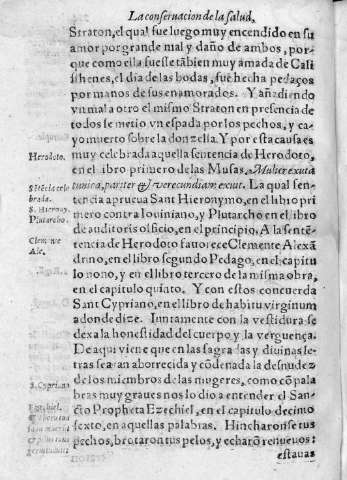 La conseruacion de la salud,
Straton, el qual fue luego muy encendido en su
amor por grande mal y daño de ambos, por-
que como ella fuesse tãbien muy amada de Cali
sthenes, el dia de las bodas, fue hecha pedaços
por manos de sus enamorados. Y añadiendo
vn mal a otro el mismo Straton en presencia de
todos se metio vn espada por los pechos, y ca-
yo muerto sobre la donzella. Y por esta causa es
Herodoto.
muy celebrada aquella sentencia de Herodoto,
en el libro primero de las Musas. Mulier exuta
Sētēcia cele
brada.
tunica, pariter & verecundiam exuit. La qual sen-
tencia aprueua Sant Hieronymo, en el libro pri
S. Hierony.
Plutarcho.
mero contra Iouiniano, y Plutarcho en el libro
de auditoris officio, en el principio. A la sentē-
Clemēte
Ale.
tencia de Herodoto fauorece Clemente Alexã
drino, en el libro segundo Pedago, en el capitu
lo nono, y en el libro tercero de la misma obra,
en el capitulo quinto. Y con estos concuerda
Sant Cypriano, en el libro de habitu virginum
adonde dize. Iuntamente con la vestidura se
dexa la honestidad del cuerpo y la verguença.
De aqui viene que en las sagradas y diuinas le-
tras sea tan aborrecida y cōdenada la desnudez
S. Cypriano
de los miembros de las mugeres, como cō pala
bras muy graues nos lo dio a entender el San-
Ezechiel.
cto Propheta Ezechiel, en el capitulo decimo
sexto, en aquellas palabras. Hincharonse tus
pechos, brotaron tus pelos, y echarō renueuos:
germinauit
estauas